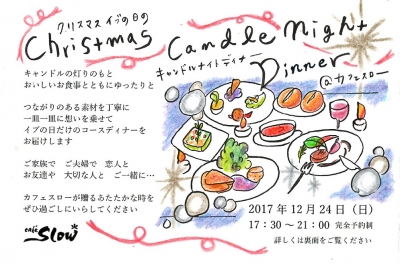 クリスマスイブの日の
Christmas Candle Night
キャンドルナイトディナー
Dinner
@カフェスロー
キャンドルの灯りのもと
おいしいお食事とともにゆったりと
つながりのある素材を丁寧に
一皿一皿に想いを乗せて
イブの日だけのコースディナーを
お届けします
ご家族で　ご夫婦で　恋人と
お友達や　大切な人と　ご一緒に…
カフェスローが贈るあたたかな時を
ぜひ過ごしにいらしてください
café Slow
2017 年 12 月 24 日（日）
17：30～21：00 完全予約制
詳しくは裏面をご覧ください